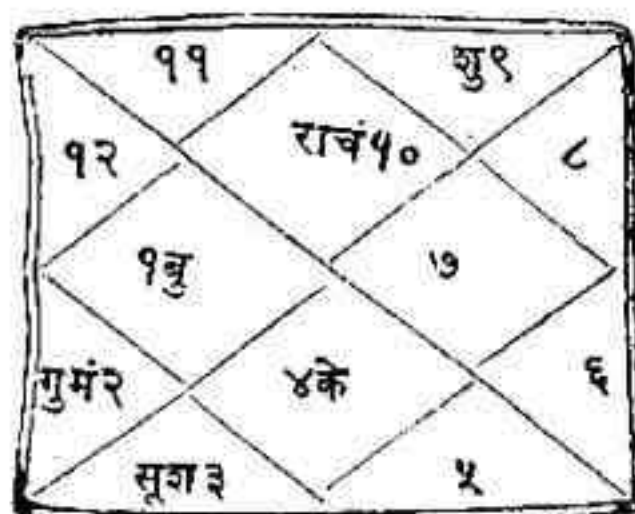 ११
शु९
१२
राचं१०
८
१बु
७
गुमं२
४के
६
सूश३
५